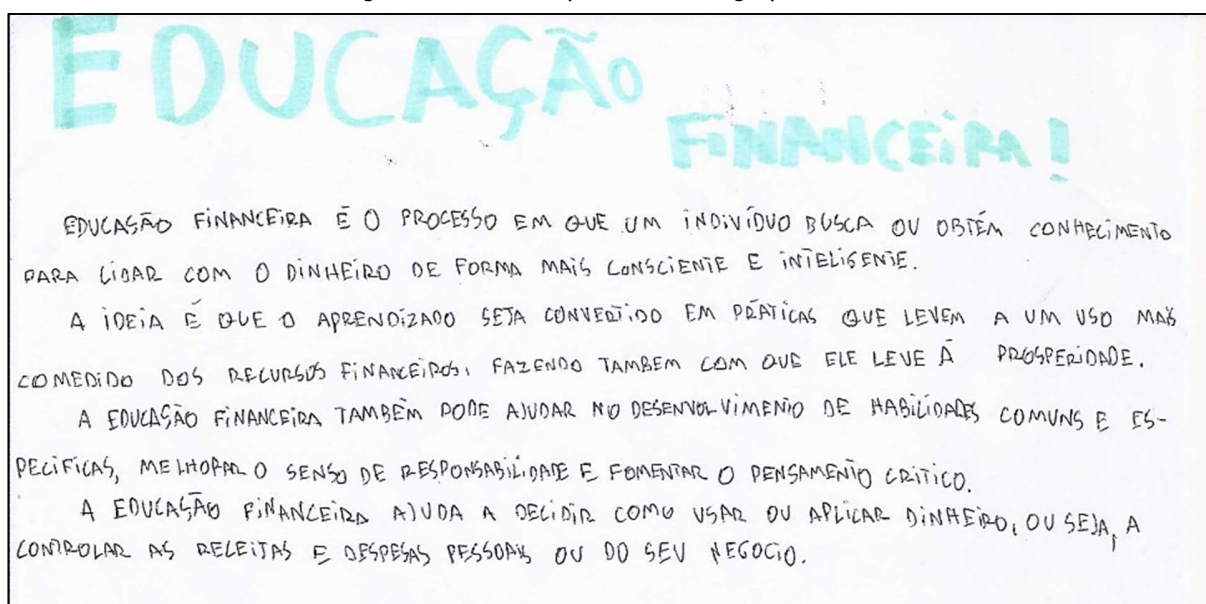 EDUCAÇÃO
FINANCEIRA!
EDUCASÃO FINANCEIRA É O PROCESSO EM QUE UM INDIVÍDUO BUSCA OU OBTÉM CONHECIMENTO
PARA LIDAR COM O DINHEIRO DE FORMA MAIS CONSCIENTE E INTELIGENTE.
A IDEIA É QUE O APRENDIZADO SEJA CONVERTIDO EM PRÁTICAS QUE LEVEM A UM USO MAIS
COMEDIDO DOS RECURSOS FINANCEIROS, FAZENDO TAMBEM COM QUE ELE LEVE À PROSPERIDADE.
A EDUCASÃO FINANCEIRA TAMBÉM PODE AJUDAR NO DESENVOLVIMENTO DE HABILIDADES COMUNS E ES-
PECIFICAS, MELHORAR O SENSO DE RESPONSABILIDADE E FOMENTAR O PENSAMENTO CRITICO.
A EDUCASÃO FINANCEIRA AJUDA A DECIDIR COMO USAR OU APLICAR DINHEIRO, OU SEJA, A
CONTROLAR AS RECEITAS E DESPESAS PESSOAIS OU DO SEU NEGOCIO.